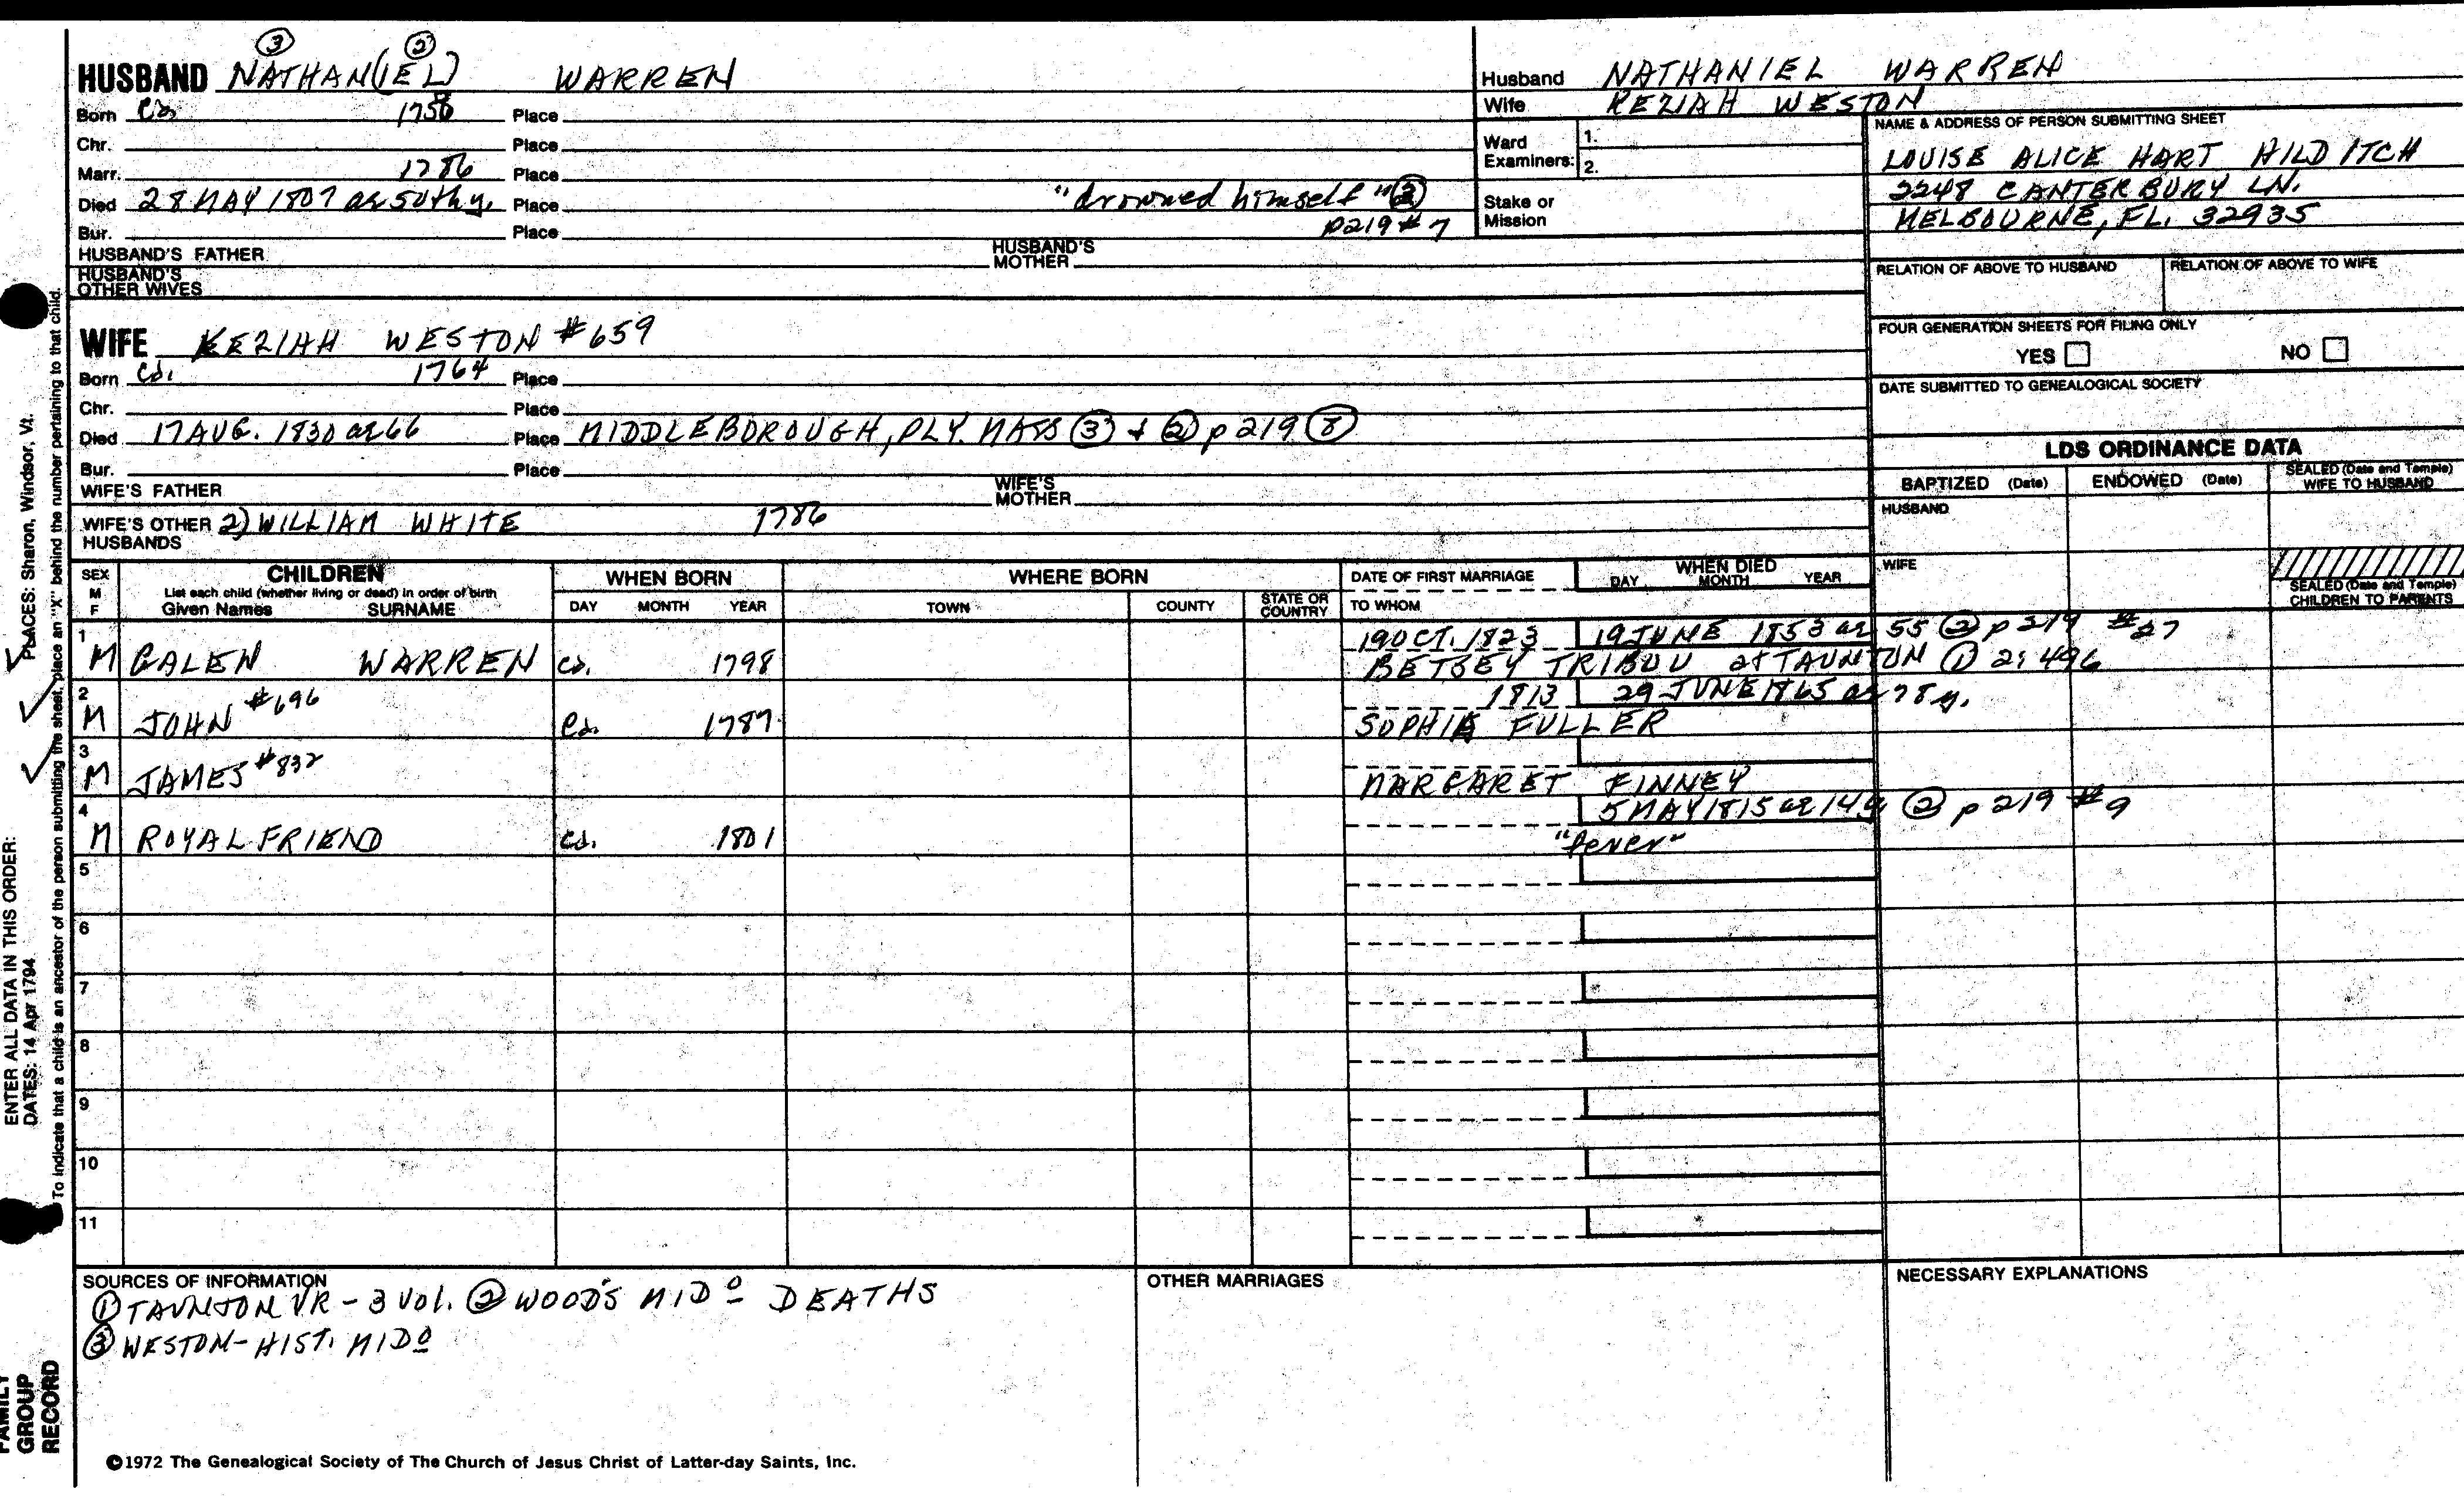 ③ ②
HUSBAND NATHAN(IEL) WARREN
Born ca. 1758 Place
Chr. Place
Marr. 1786 Place
Died 28 MAY 1807 ae 50th y. Place "drowned himself" ②
Bur. Place p219 # 7
HUSBAND'S FATHER HUSBAND'S MOTHER
HUSBAND'S OTHER WIVES
WIFE KEZIAH WESTON #659
Born ca. 1764 Place
Chr. Place
Died 17 AUG. 1830 ae 66 Place MIDDLEBOROUGH, PLY. MASS ③ + ② p 219 ⑧
Bur. Place
WIFE'S FATHER WIFE'S MOTHER
WIFE'S OTHER HUSBANDS 2) WILLIAM WHITE 1786
Husband NATHANIEL WARREN
Wife KEZIAH WESTON
Ward Examiners: 1.
2.
Stake or Mission
NAME & ADDRESS OF PERSON SUBMITTING SHEET
LOUISE ALICE HART HILDITCH
2248 CANTERBURY LN.
MELBOURNE, FL. 32935
RELATION OF ABOVE TO HUSBAND RELATION OF ABOVE TO WIFE
FOUR GENERATION SHEETS FOR FILING ONLY
YES NO
DATE SUBMITTED TO GENEALOGICAL SOCIETY
LDS ORDINANCE DATA
BAPTIZED (Date) ENDOWED (Date) SEALED (Date and Temple) WIFE TO HUSBAND
HUSBAND
WIFE
SEALED (Date and Temple) CHILDREN TO PARENTS
SEX M F
CHILDREN
List each child (whether living or dead) in order of birth
Given Names SURNAME
WHEN BORN
DAY MONTH YEAR
WHERE BORN
TOWN COUNTY STATE OR COUNTRY
DATE OF FIRST MARRIAGE
TO WHOM
WHEN DIED
DAY MONTH YEAR
1 19 OCT. 1823 19 JUNE 1853 ae 55 ② p 219 #27
M GALEN WARREN ca. 1798 BETSEY TRIBOU at TAUNTON ① 2: 496
2 1813 29 JUNE 1865 ae 78 y.
M JOHN #696 ca. 1787 SOPHIA FULLER
3
M JAMES #832 MARGARET FINNEY
4 5 MAY 1815 ae 14 y ② p 219 #9
M ROYAL FRIEND ca. 1801 "fever"
5
6
7
8
9
10
11
SOURCES OF INFORMATION
① TAUNTON VR - 3 vol. ② WOOD'S MIDº DEATHS
③ WESTON - HIST. MIDº
OTHER MARRIAGES
NECESSARY EXPLANATIONS
©1972 The Genealogical Society of The Church of Jesus Christ of Latter-day Saints, Inc.
FAMILY GROUP RECORD
ENTER ALL DATA IN THIS ORDER:
DATES: 14 Apr 1794
PLACES: Sharon, Windsor, Vt.
To indicate that a child is an ancestor of the person submitting the sheet, place an "X" behind the number pertaining to that child.